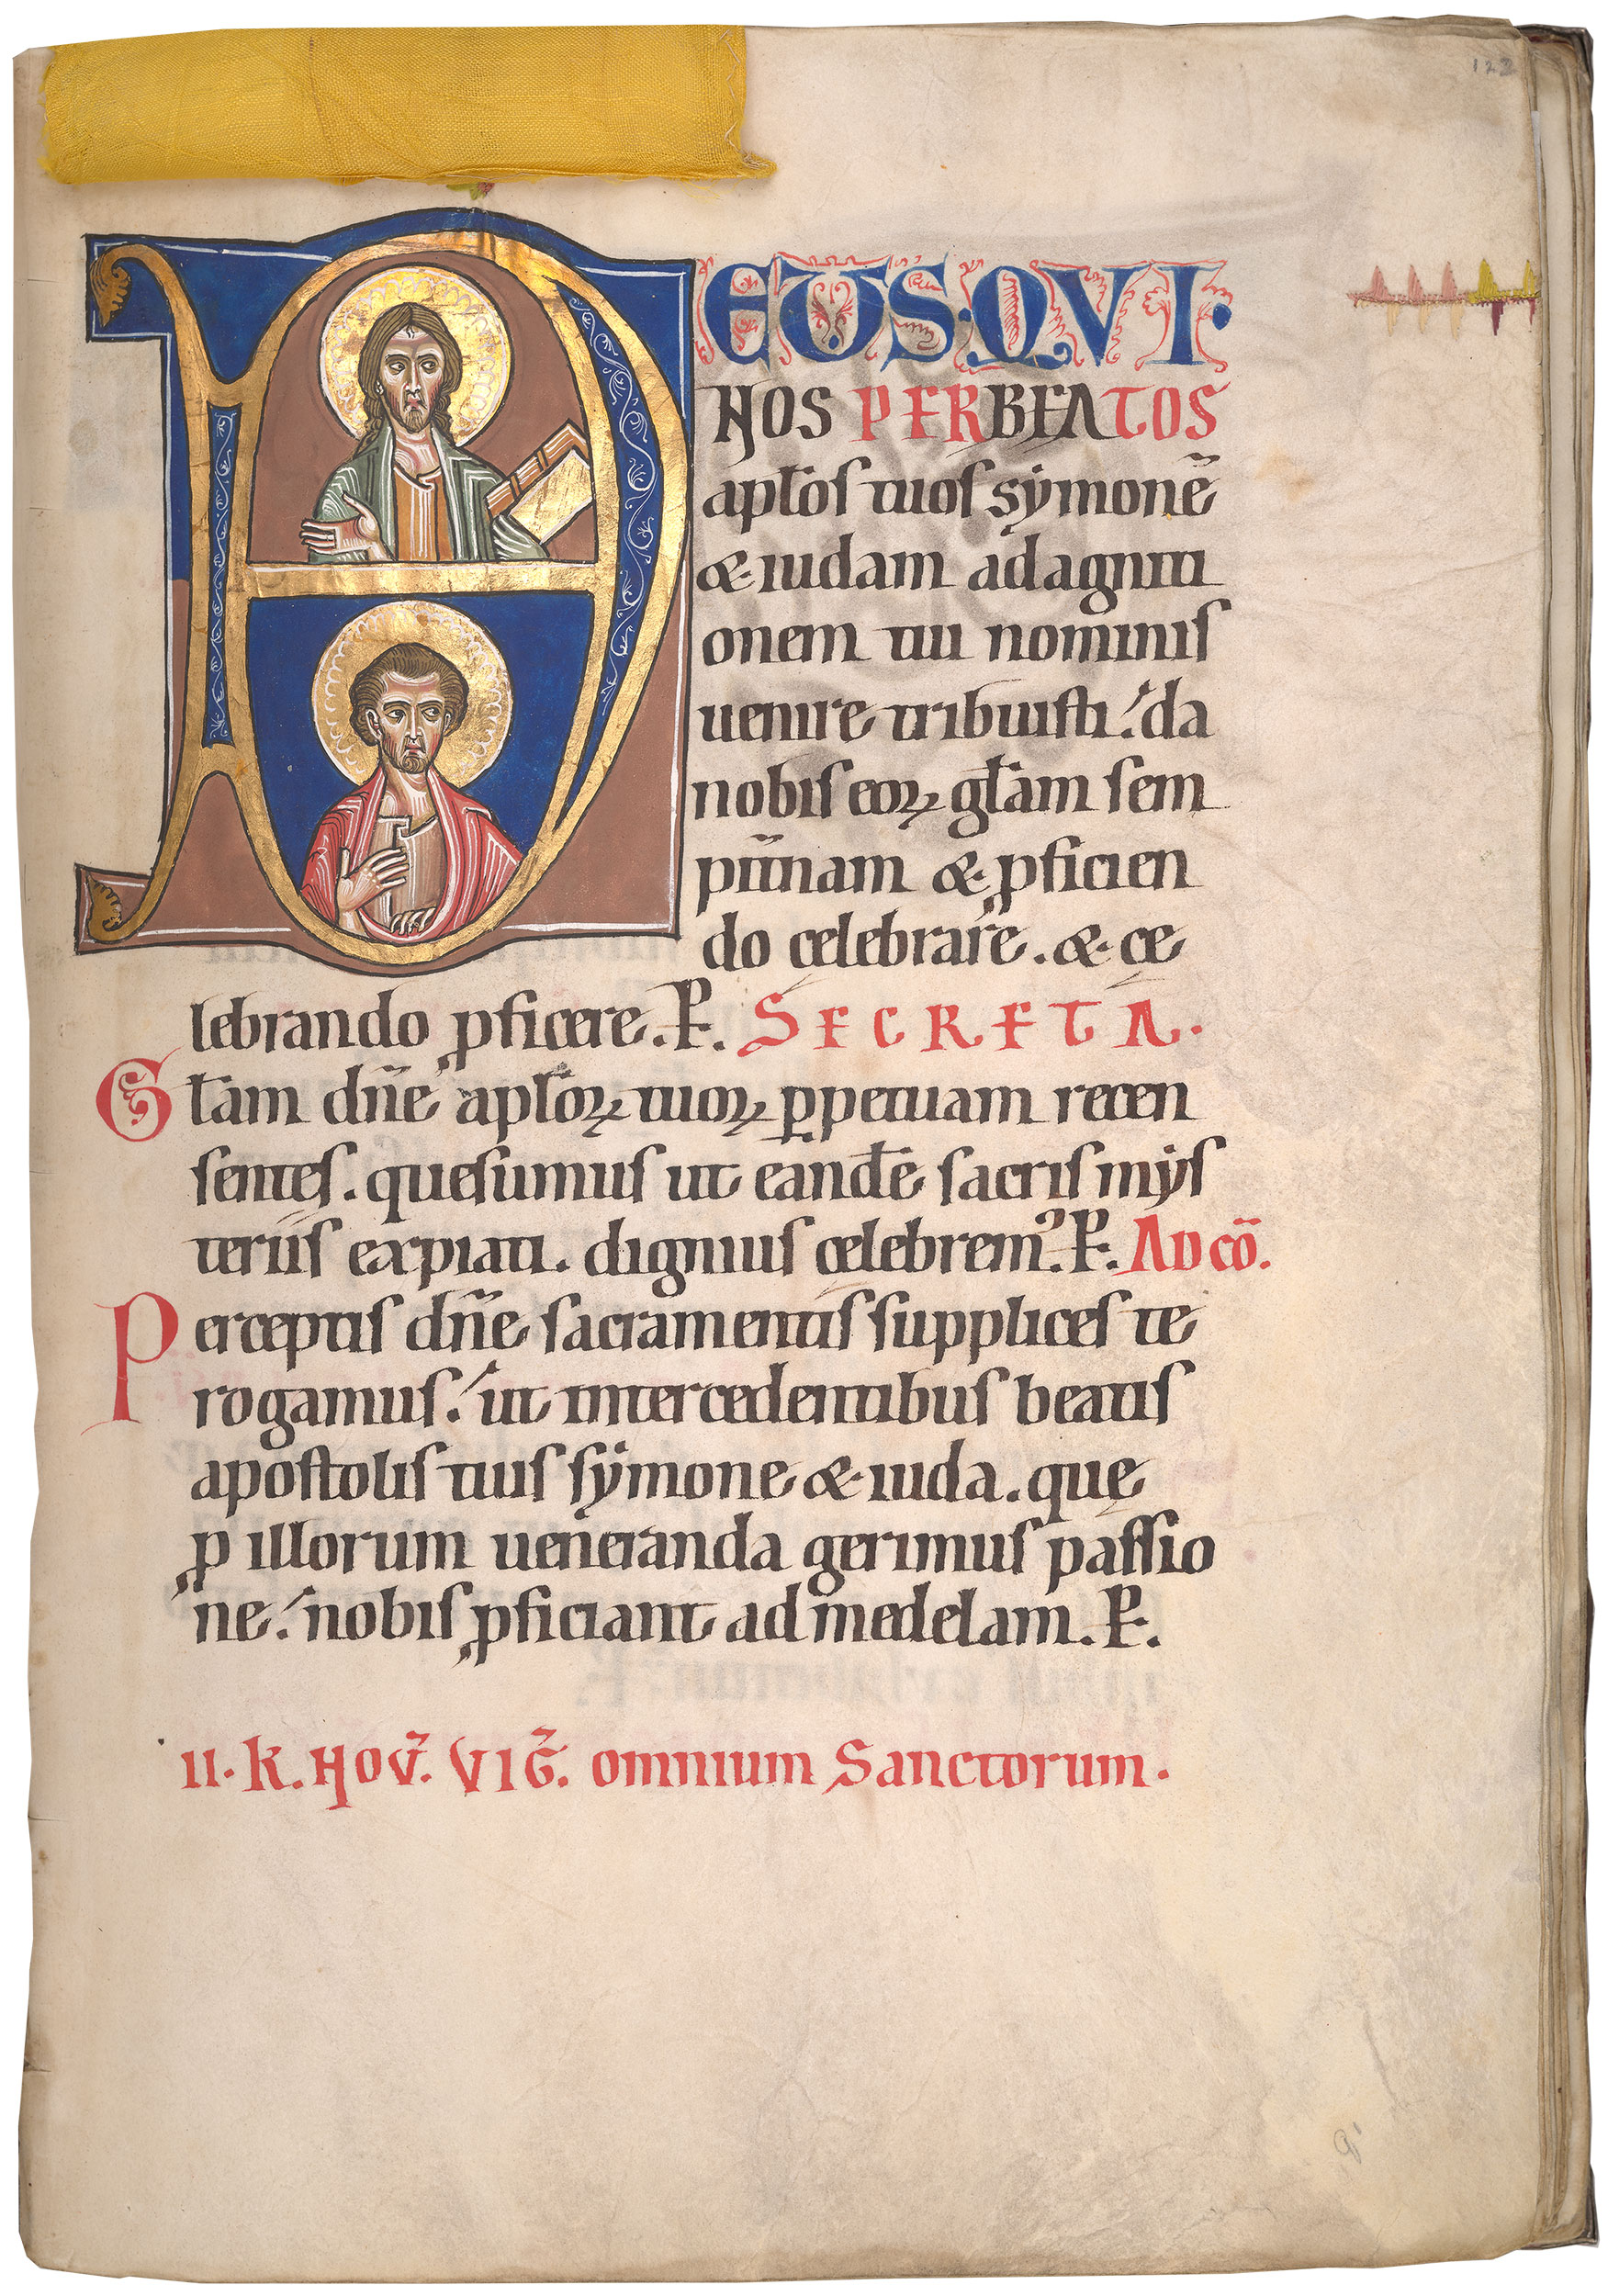 122
DEUS·QVI·
NOS PER BEATOS
apl̄os tuos sẏmonē
& iudam ad agniti
onem tui nominis
uenire tribuisti. da
nobis eoꝝ gl̄am sem
pit̄nam & ꝓficien
do celebrare. & ce
lebrando ꝓficere. P. SECRETA.
Gl̄am dn̄e apl̄oꝝ tuoꝝ ꝑpetuam recen
sentes. quesumus ut eandē sacris mẏs
teriis expiati. dignius celebrem᷒. P. AD cō.
Perceptis dn̄e sacramentis supplices te
rogamus. ut intercedentibus beatis
apostolis tuis sẏmone & iuda. que
ꝓ illorum ueneranda gerimus passio
ne. nobis ꝓficiant ad medelam. P.
II. K. NOV̄. VIḠ. omnium Sanctorum.